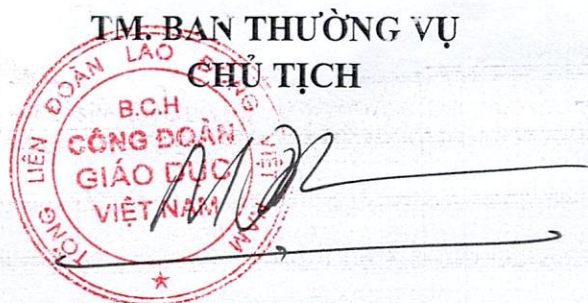 TM. BAN THƯỜNG VỤ
CHỦ TỊCH
TỔNG LIÊN ĐOÀN LAO ĐỘNG VIỆT NAM
B.C.H
CÔNG ĐOÀN
GIÁO DỤC
VIỆT NAM